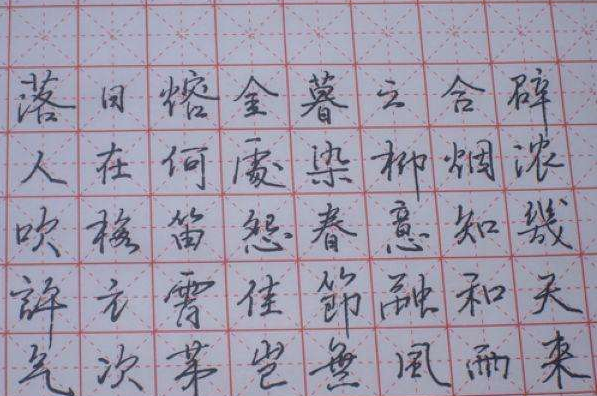 落日熔金暮云合璧
人在何處染柳烟浓
吹梅笛怨春意知幾
許元宵佳節融和天
气次第岂無風雨来